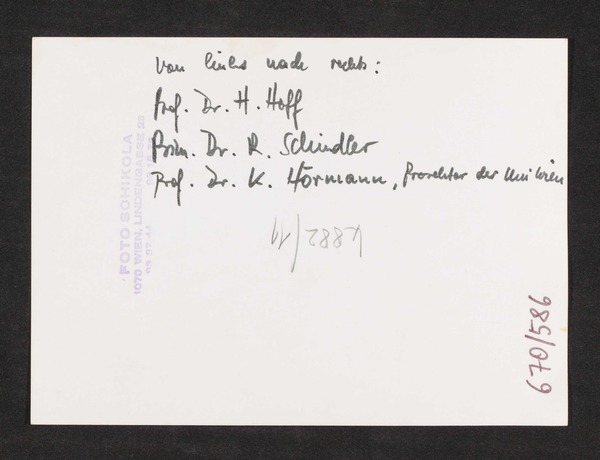 Von links nach rechts:
Prof. Dr. H. Hoff
Prim. Dr. R. Schindler
Prof. Dr. K. Hörmann, Prorektor der Uni Wien
FOTO SCHIKOLA
1070 WIEN, LINDENGASSE
670/586